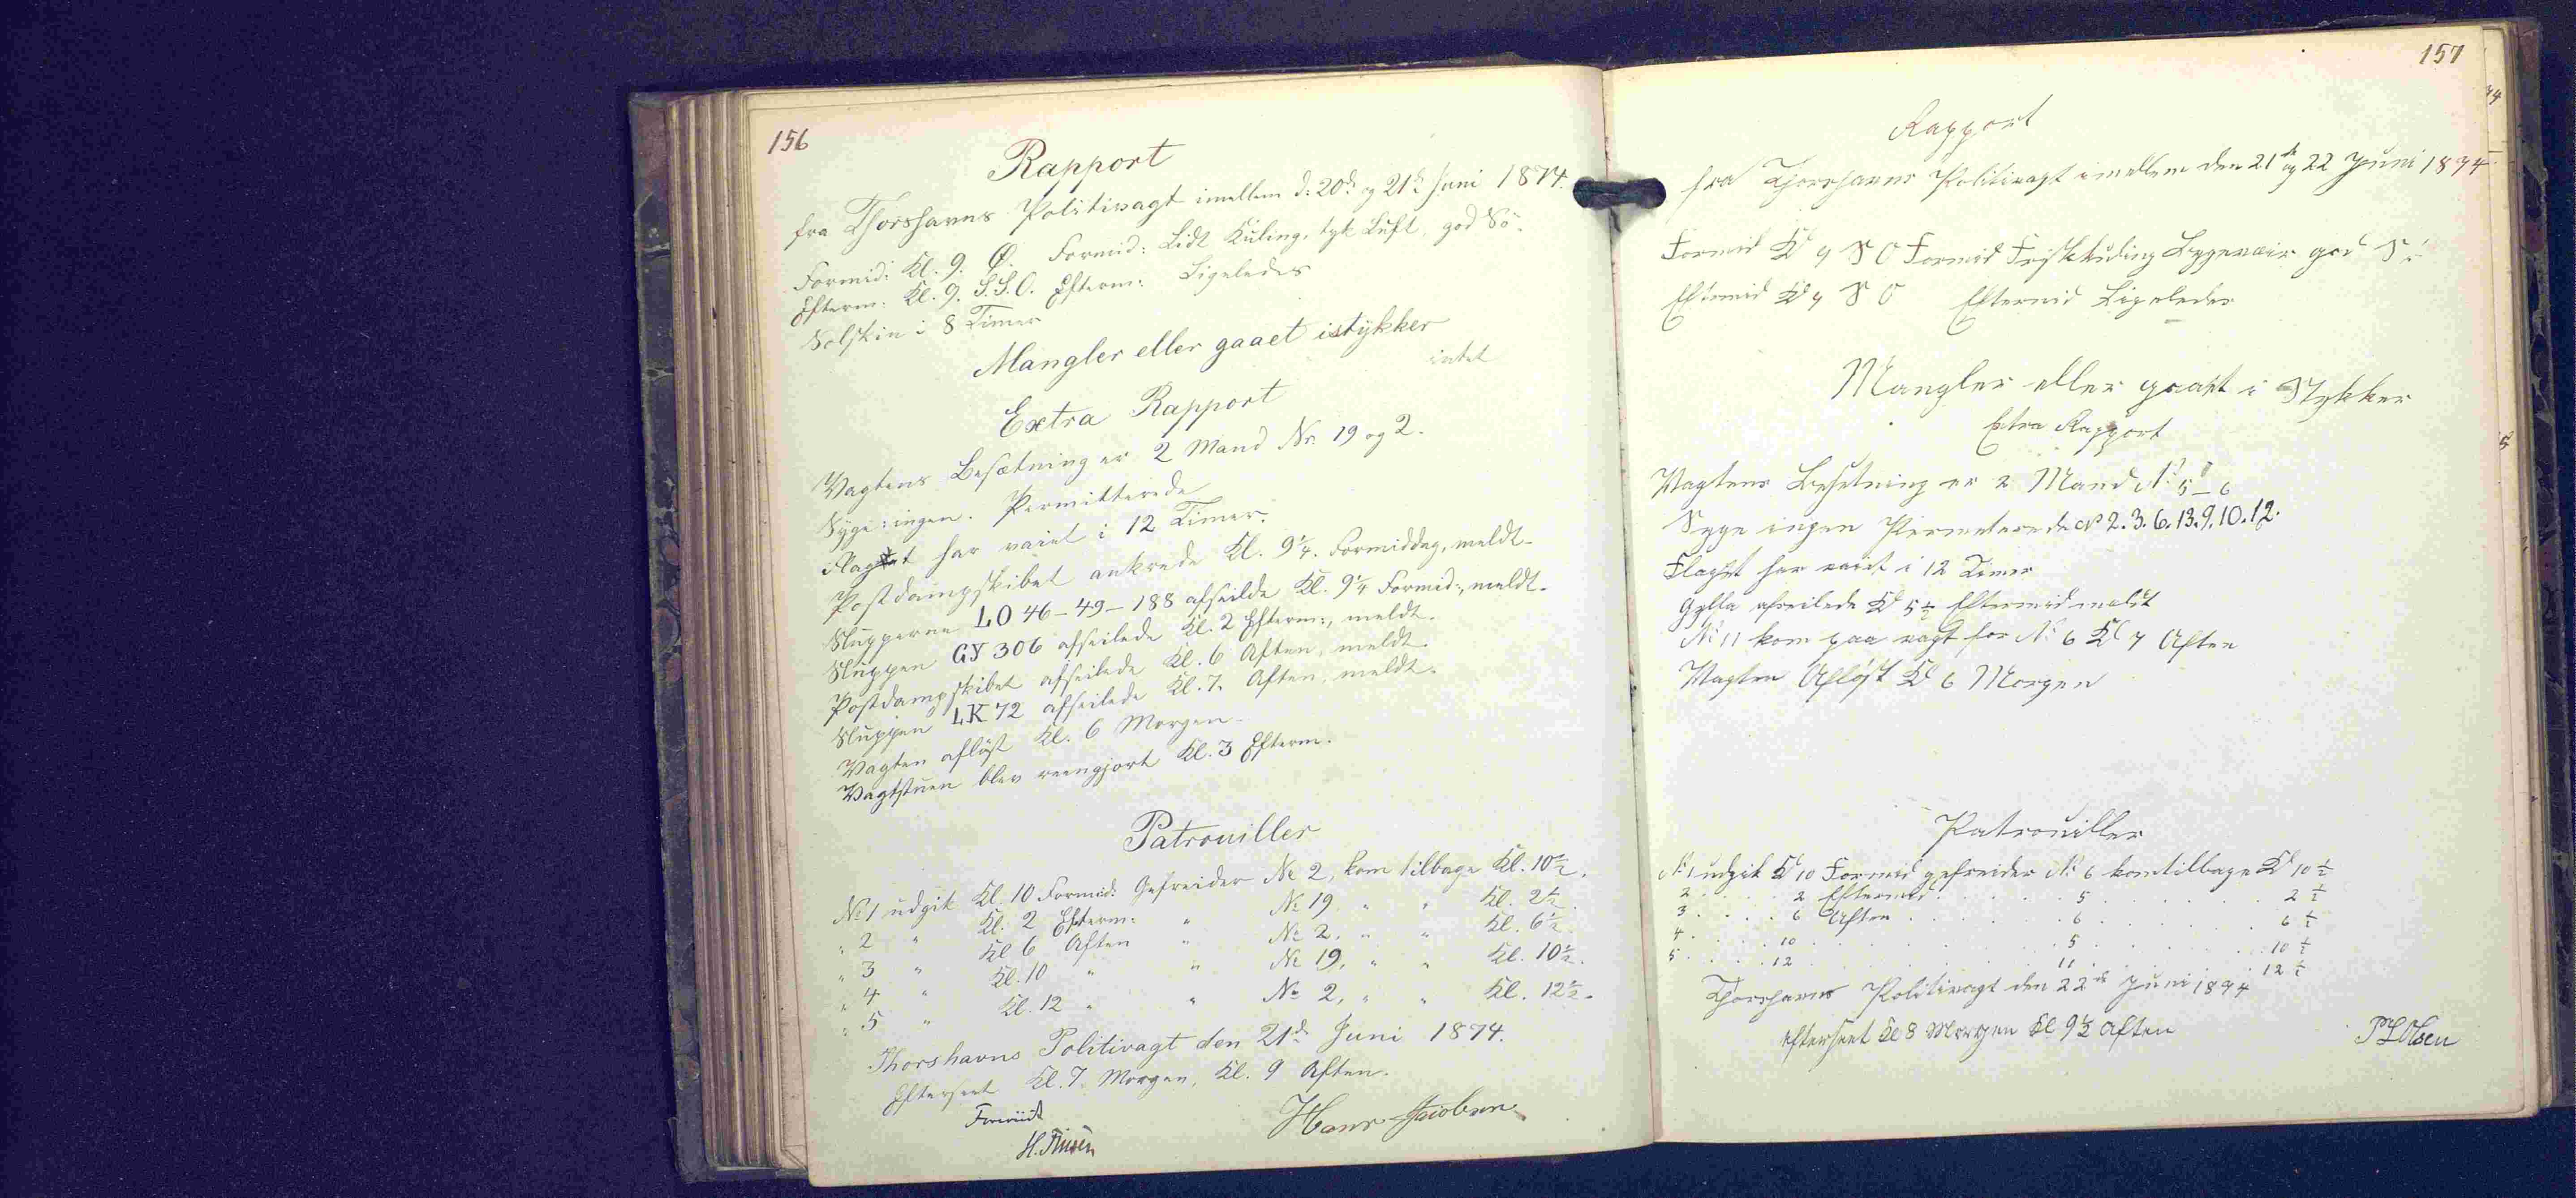 156
Rapport
fra Thorshavns Politivagt imellem d: 20de og 21de Juni 1874.
Formid: Kl. 9. Ø. Formid: Lidt Kuling, tyk Luft, god Sö.
Efterm: Kl. 9. S.S.O. Efterm: Ligeledes
Solskin i 8 Timer
Mangler eller gaaet istykker
intet
Extra Rapport
Vagtens Besætning er 2 Mand No. 19 og 2.
Syge: ingen. Permitterede
Flaget har vaiet i 12 Timer.
Postdampskibet ankrede Kl. 9¼. Formiddag, meldt.
Slupperne LO 46-49-188 afseilede Kl. 9¼ Formid:, meldt.
Sluppen GY 306 afseilede Kl. 2 Efterm:, meldt.
Postdampskibet afseilede Kl. 6 Aften, meldt.
Sluppen LK 72 afseilede Kl. 7. Aften, meldt.
Vagten aflöst Kl. 6 Morgen.
Vagtstuen blev reengjort Kl. 3 Efterm.
Patrouiller
No 1 udgik Kl. 10 Formid: Gefreider No 2, kom tilbage Kl. 10½.
" 2 " Kl. 2 Efterm: " No 19. " " Kl. 2½.
" 3 " Kl 6 Aften " No 2. " " Kl. 6½.
" 4 " Kl. 10 " " No 19. " " Kl. 10½.
" 5 " Kl. 12 " " No 2, " " Kl. 12½.
Thorshavns Politivagt den 21de Juni 1874.
Efterseet Kl. 7. Morgen, Kl. 9 Aften.
Foreviist
Hans Jacobsen
157
Rapport
fra Thorshavns Politivagt imellem den 21de og 22 Juni 1874
Formid Kl 9 S O Formid Friskkuling Bygeveir god Sö
Eftermid Kl 9 S O Eftermid Ligeledes
Mangler eller gaaet i Stykker
Extra Rapport
Vagtens Besetning er 2 Mand No 5-6
Syge ingen Permeterede No 2.3.6.13.9.10.12.
Flaget har vaiet i 12 Timer
Gylla afseilede Kl 5½ Eftermid meldt
No 11 kom paa vagt for No 6 Kl 7 Aften
Vagten Aflöst Kl 6 Morgen
Patrouiller
No 1 udgik Kl 10 Formid gefreider No 6 kom tilbage Kl 10½
2 . . . . 2 Eftermid . . . . 5 . . . . 2½
3 . . . . 6 Aften . . . . 6 . . . . 6½
4 . . . . 10 . . . . 5 . . . . 10½
5 . . . . 12 . . . . 11 . . . . 12½
Thorshavns Politivagt den 22de Juni 1874
efterseet Kl 8 Morgen Kl 9½ Aften
P L Olsen